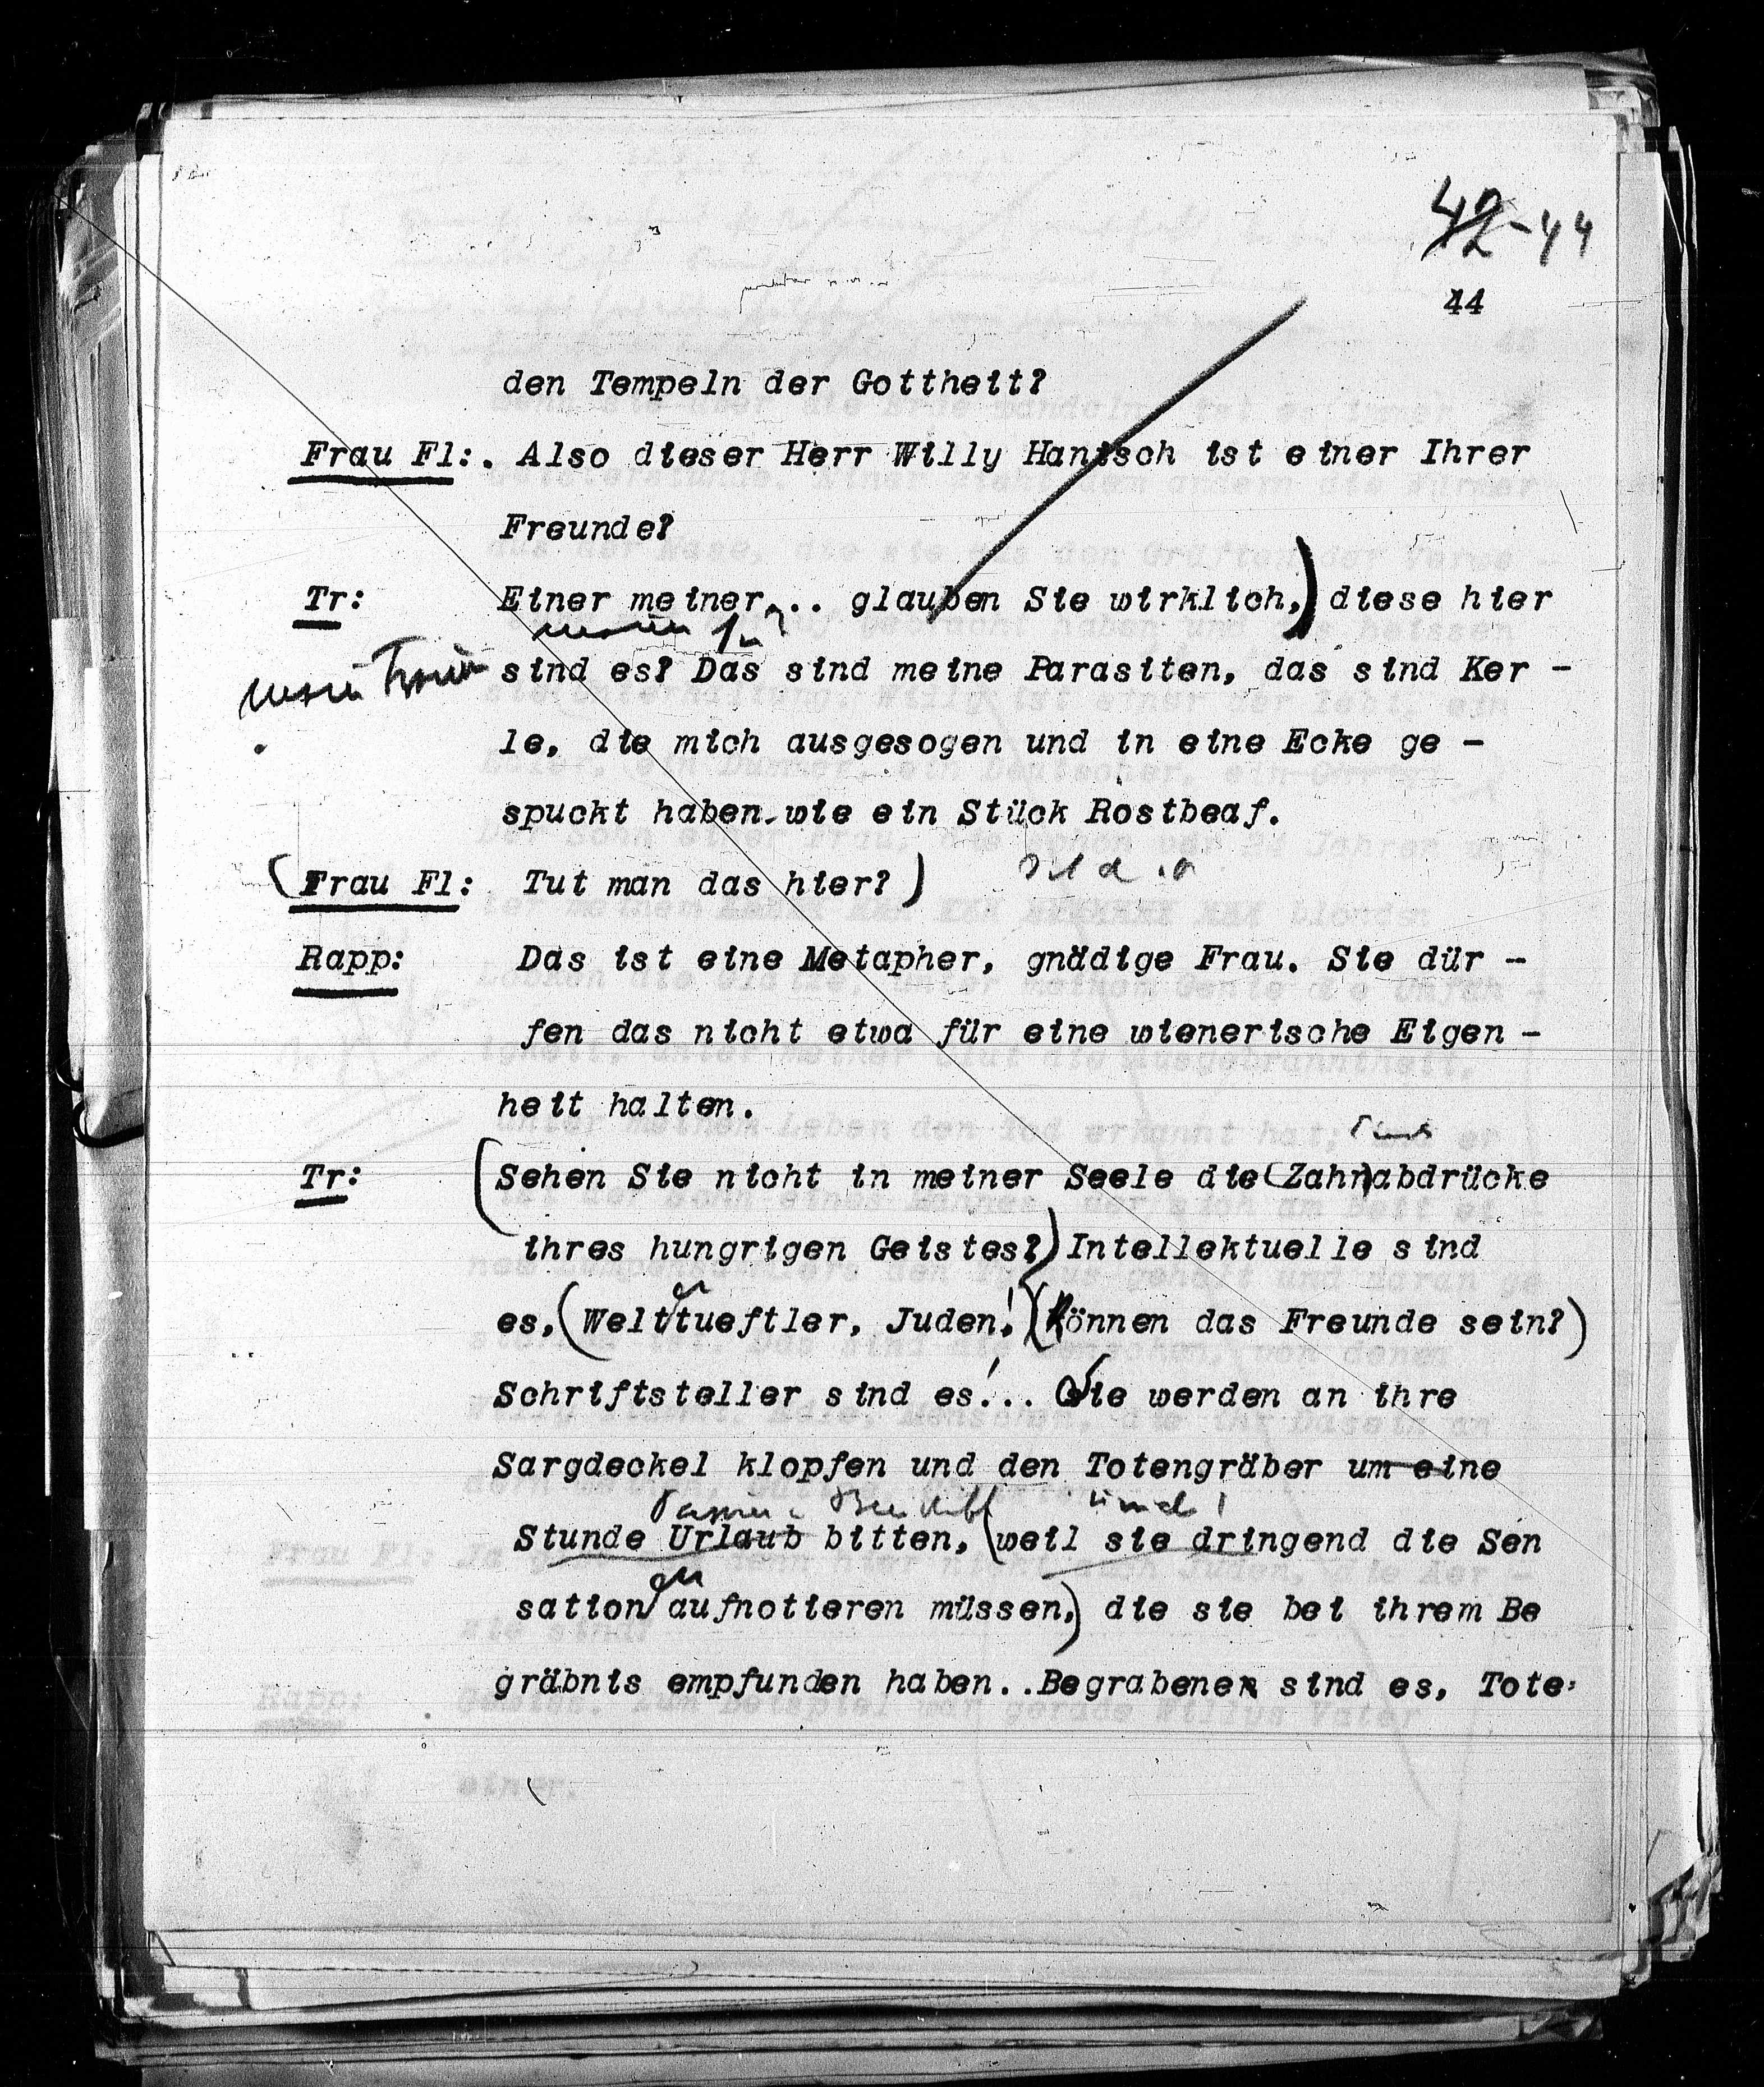 42-44
44
den Tempeln der Gottheit?
Frau Fl:. Also dieser Herr Willy Hanisch ist einer Ihrer
Freunde?
Tr: Einer meiner... glauben Sie wirklich,) diese hier
sind es? Das sind meine Parasiten, das sind Ker -
le, die mich ausgesogen und in eine Ecke ge -
spuckt haben wie ein Stück Rostbeaf.
(Frau Fl: Tut man das hier?)
Rapp: Das ist eine Metapher, gnädige Frau. Sie dür -
fen das nicht etwa für eine wienerische Eigen -
heit halten.
Tr: (Sehen Sie nicht in meiner Seele die (Zahn)abdrücke
ihres hungrigen Geistes?) Intellektuelle sind
es, (Welttueftler, Juden!)(Können das Freunde sein?)
Schriftsteller sind es!.. Sie werden an ihre
Sargdeckel klopfen und den Totengräber um eine
und
Stunde Urlaub bitten, (weil sie dringend die Sen
sation aufnotieren müssen,) die sie bei ihrem Be
gräbnis empfunden haben..Begrabene sind es, Tote